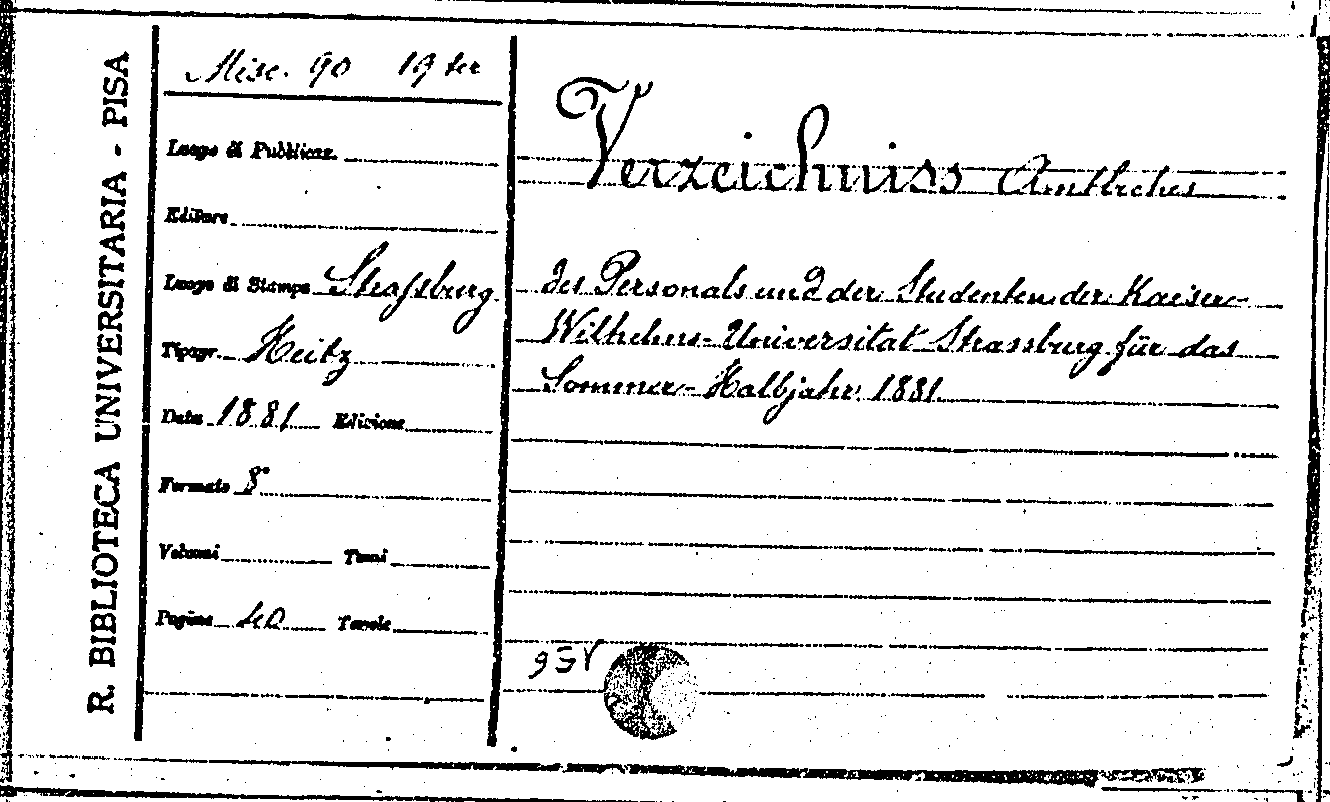 R. BIBLIOTECA UNIVERSITARIA - PISA
Misc. 90 19 ter
Luogo di Pubblicaz.
Editore
Luogo di Stampa Strassburg
Tipogr. Heitz
Data 1881 Edizione
Formato 8°
Volumi Tomi
Pagine 40 Tavole
Verzeichniss Amtliches
des Personals und der Studenten der Kaiser-
Wilhelms-Universitat Strassburg für das
Sommer-Halbjahr 1881